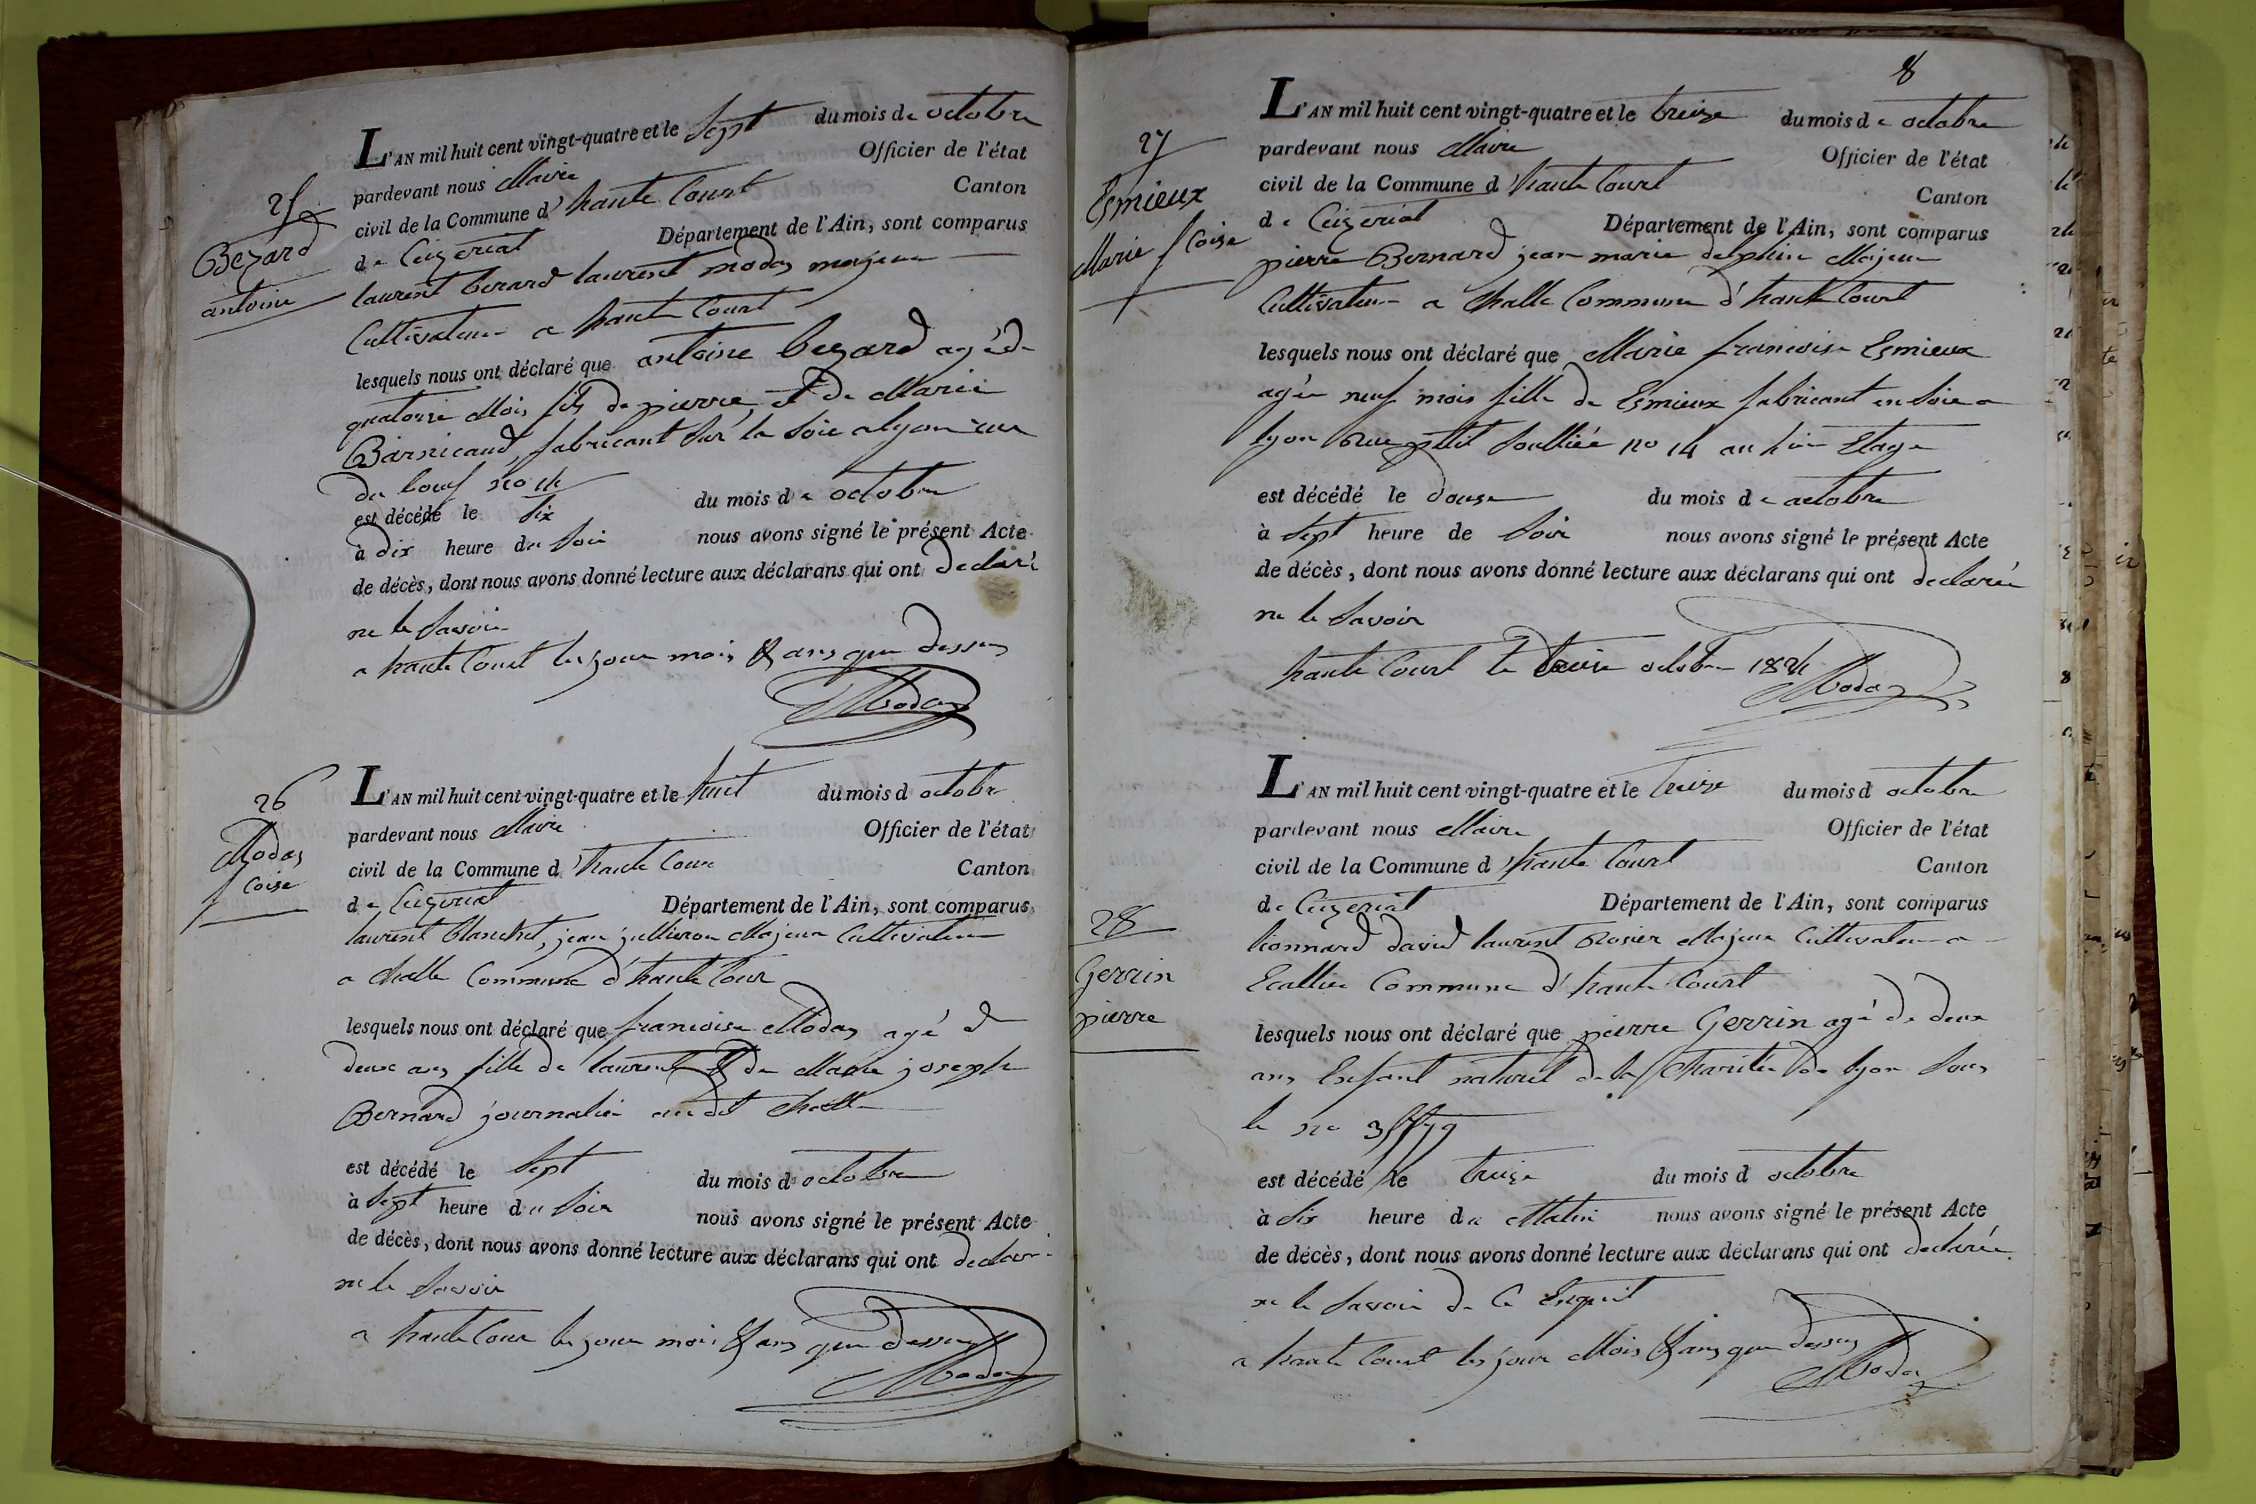 25
Bezard
antoine
L'AN mil huit cent vingt-quatre et le Sept du mois de octobre
pardevant nous Maire Officier de l'état
civil de la Commune d'haute Court Canton
de Ceizeriat Département de l'Ain, sont comparus
laurent berard laurent modas majeur
Cultivateur a haute Court
lesquels nous ont déclaré que antoine bezard agé de
quatorse Mois fils de pierre et de Marie
Barnicaud, fabricant Sur la Soie a lyon rue
du boeuf no
est décédé le Six du mois de octobre
à dix heure du Soir nous avons signé le présent Acte
de décès, dont nous avons donné lecture aux déclarans qui ont declaré
ne le Savoir
a haute Court les jour mois & ans que dessus
Modas
26
Modas
fcoise
L'AN mil huit cent vingt-quatre et le huit du mois d octobre
pardevant nous Maire Officier de l'état
civil de la Commune d'haute Cour Canton
de Ceizeriat Département de l'Ain, sont comparus
laurent blanchet, jean jullieron Majeur Cultivateur
a challe Commune d'haute Cour
lesquels nous ont déclaré que francoise Modas agé d
deux ans fille de laurent & de Marie joseph
Bernard journalié audit challe
est décédé le Sept du mois d octobre
à Sept heure du Soir nous avons signé le présent Acte
de décès, dont nous avons donné lecture aux déclarans qui ont declaré
ne le Savoir
a haute Cour les jour mois & ans que dessus
Modas
8
27
Esmieux
Marie fcoise
L'AN mil huit cent vingt-quatre et le treize du mois de octobre
pardevant nous Maire Officier de l'état
civil de la Commune d'haute Court Canton
de Ceizeriat Département de l'Ain, sont comparus
pierre Bernard jean marie delphin Majeur
Cultivateur a challe Commune d'haute Court
lesquels nous ont déclaré que Marie francoise Esmieux
agée neuf mois fille de Esmieux fabricant en Soie a
lyon Rue ptit Soulliée no 14 au Etage
est décédé le douse du mois de octobre
à Sept heure de Soir nous avons signé le présent Acte
de décès, dont nous avons donné lecture aux déclarans qui ont declarée
ne le Savoir
haute Court le treise octobre 1824
Modas
28
Gerrin
pierre
L'AN mil huit cent vingt-quatre et le treize du mois d octobre
pardevant nous Maire Officier de l'état
civil de la Commune d'haute Court Canton
de Ceizeriat Département de l'Ain, sont comparus
lionnard david laurent Rosier Majeur Cultivateur a
Ecallier Commune d'haute Court
lesquels nous ont déclaré que pierre Gerrin agé de deux
ans Enfant naturel de la Charitée de lyon Sous
le no
est décédé le treize du mois d octobre
à Six heure du Matin nous avons signé le présent Acte
de décès, dont nous avons donné lecture aux déclarans qui ont declarée
ne le Savoir de Ce Enquit
a haute Court les jour Mois & ans que dessus
Modas